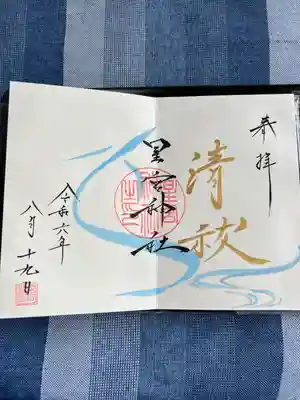 奉拝
清秋
星宮神社
令和六年
八月十九日